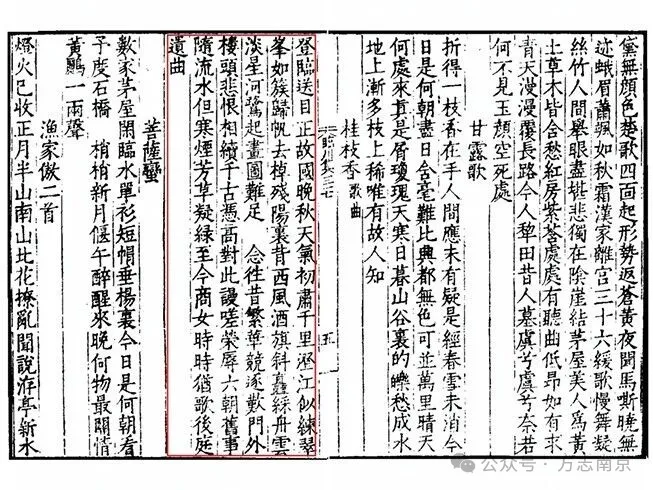 黛無顏色楚歌四面起形勢返蒼黃夜聞馬嘶曉無
迹蛾眉蕭颯如秋霜漢家離宮三十六緩歌慢舞凝
絲竹人間舉眼盡堪悲獨在陰崖結茅屋美人為黃
土草木皆含愁紅房紫菂處處有聽曲低昂如有求
青天漫漫覆長路今人犂田昔人墓虞兮虞兮奈若
何不見玉顏空死處
甘露歌
折得一枝香在手人間應未有疑是經春雪未消今
日是何朝盡日含毫難比興都無色可並萬里晴天
何處來真是屑瓊瑰天寒日暮山谷裏的皪愁成水
地上漸多枝上稀唯有故人知
桂枝香 歌曲
五
登臨送目正故國晚秋天氣初肅千里澄江似練翠
峯如簇歸帆去棹殘陽裏背西風酒旗斜矗綵舟雲
淡星河鷺起畫圖難足 念往昔繁華競逐歎門外
樓頭悲恨相續千古憑高對此謾嗟榮辱六朝舊事
隨流水但寒煙芳草凝綠至今商女時時猶歌後庭
遺曲
菩薩蠻
數家茅屋閑臨水單衫短帽垂楊裏今日是何朝看
予度石橋 梢梢新月偃午醉醒來晚何物最關情
黃鸝一兩聲
漁家傲二首
燈火已收正月半山南山北花撩亂聞說洊亭新水
公众号·方志南京